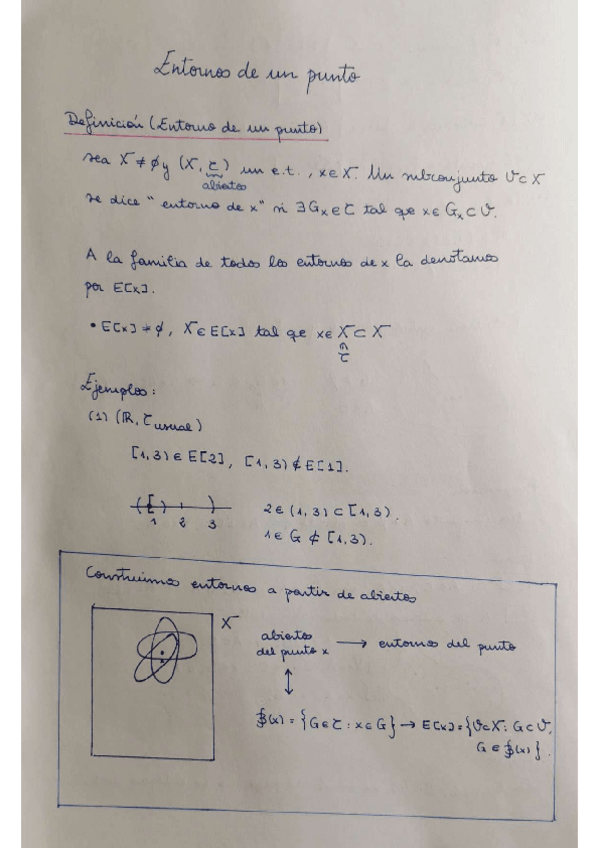 Entornos de un punto
Definición (Entorno de un punto)
sea X ≠ ∅ y (X, τ) un e.t., x ∈ X. Un subconjunto U ⊂ X
abiertos
se dice "entorno de x" si ∃ Gₓ ∈ τ tal que x ∈ Gₓ ⊂ U.
A la familia de todos los entornos de x la denotamos
por E[x].
• E[x] ≠ ∅, X ∈ E[x] tal que x ∈ X ⊂ X
∩
τ
Ejemplos:
(1) (ℝ, τ usual)
[1,3) ∈ E[2], [1,3) ∉ E[1].
1 2 3
2 ∈ (1,3) ⊂ [1,3).
1 ∈ G ⊄ [1,3).
Construimos entornos a partir de abiertos
X
abiertos
del punto x → entornos del punto
↕
β(x) = {G ∈ τ : x ∈ G} → E[x] = {U ⊂ X : G ⊂ U,
G ∈ β(x)}.